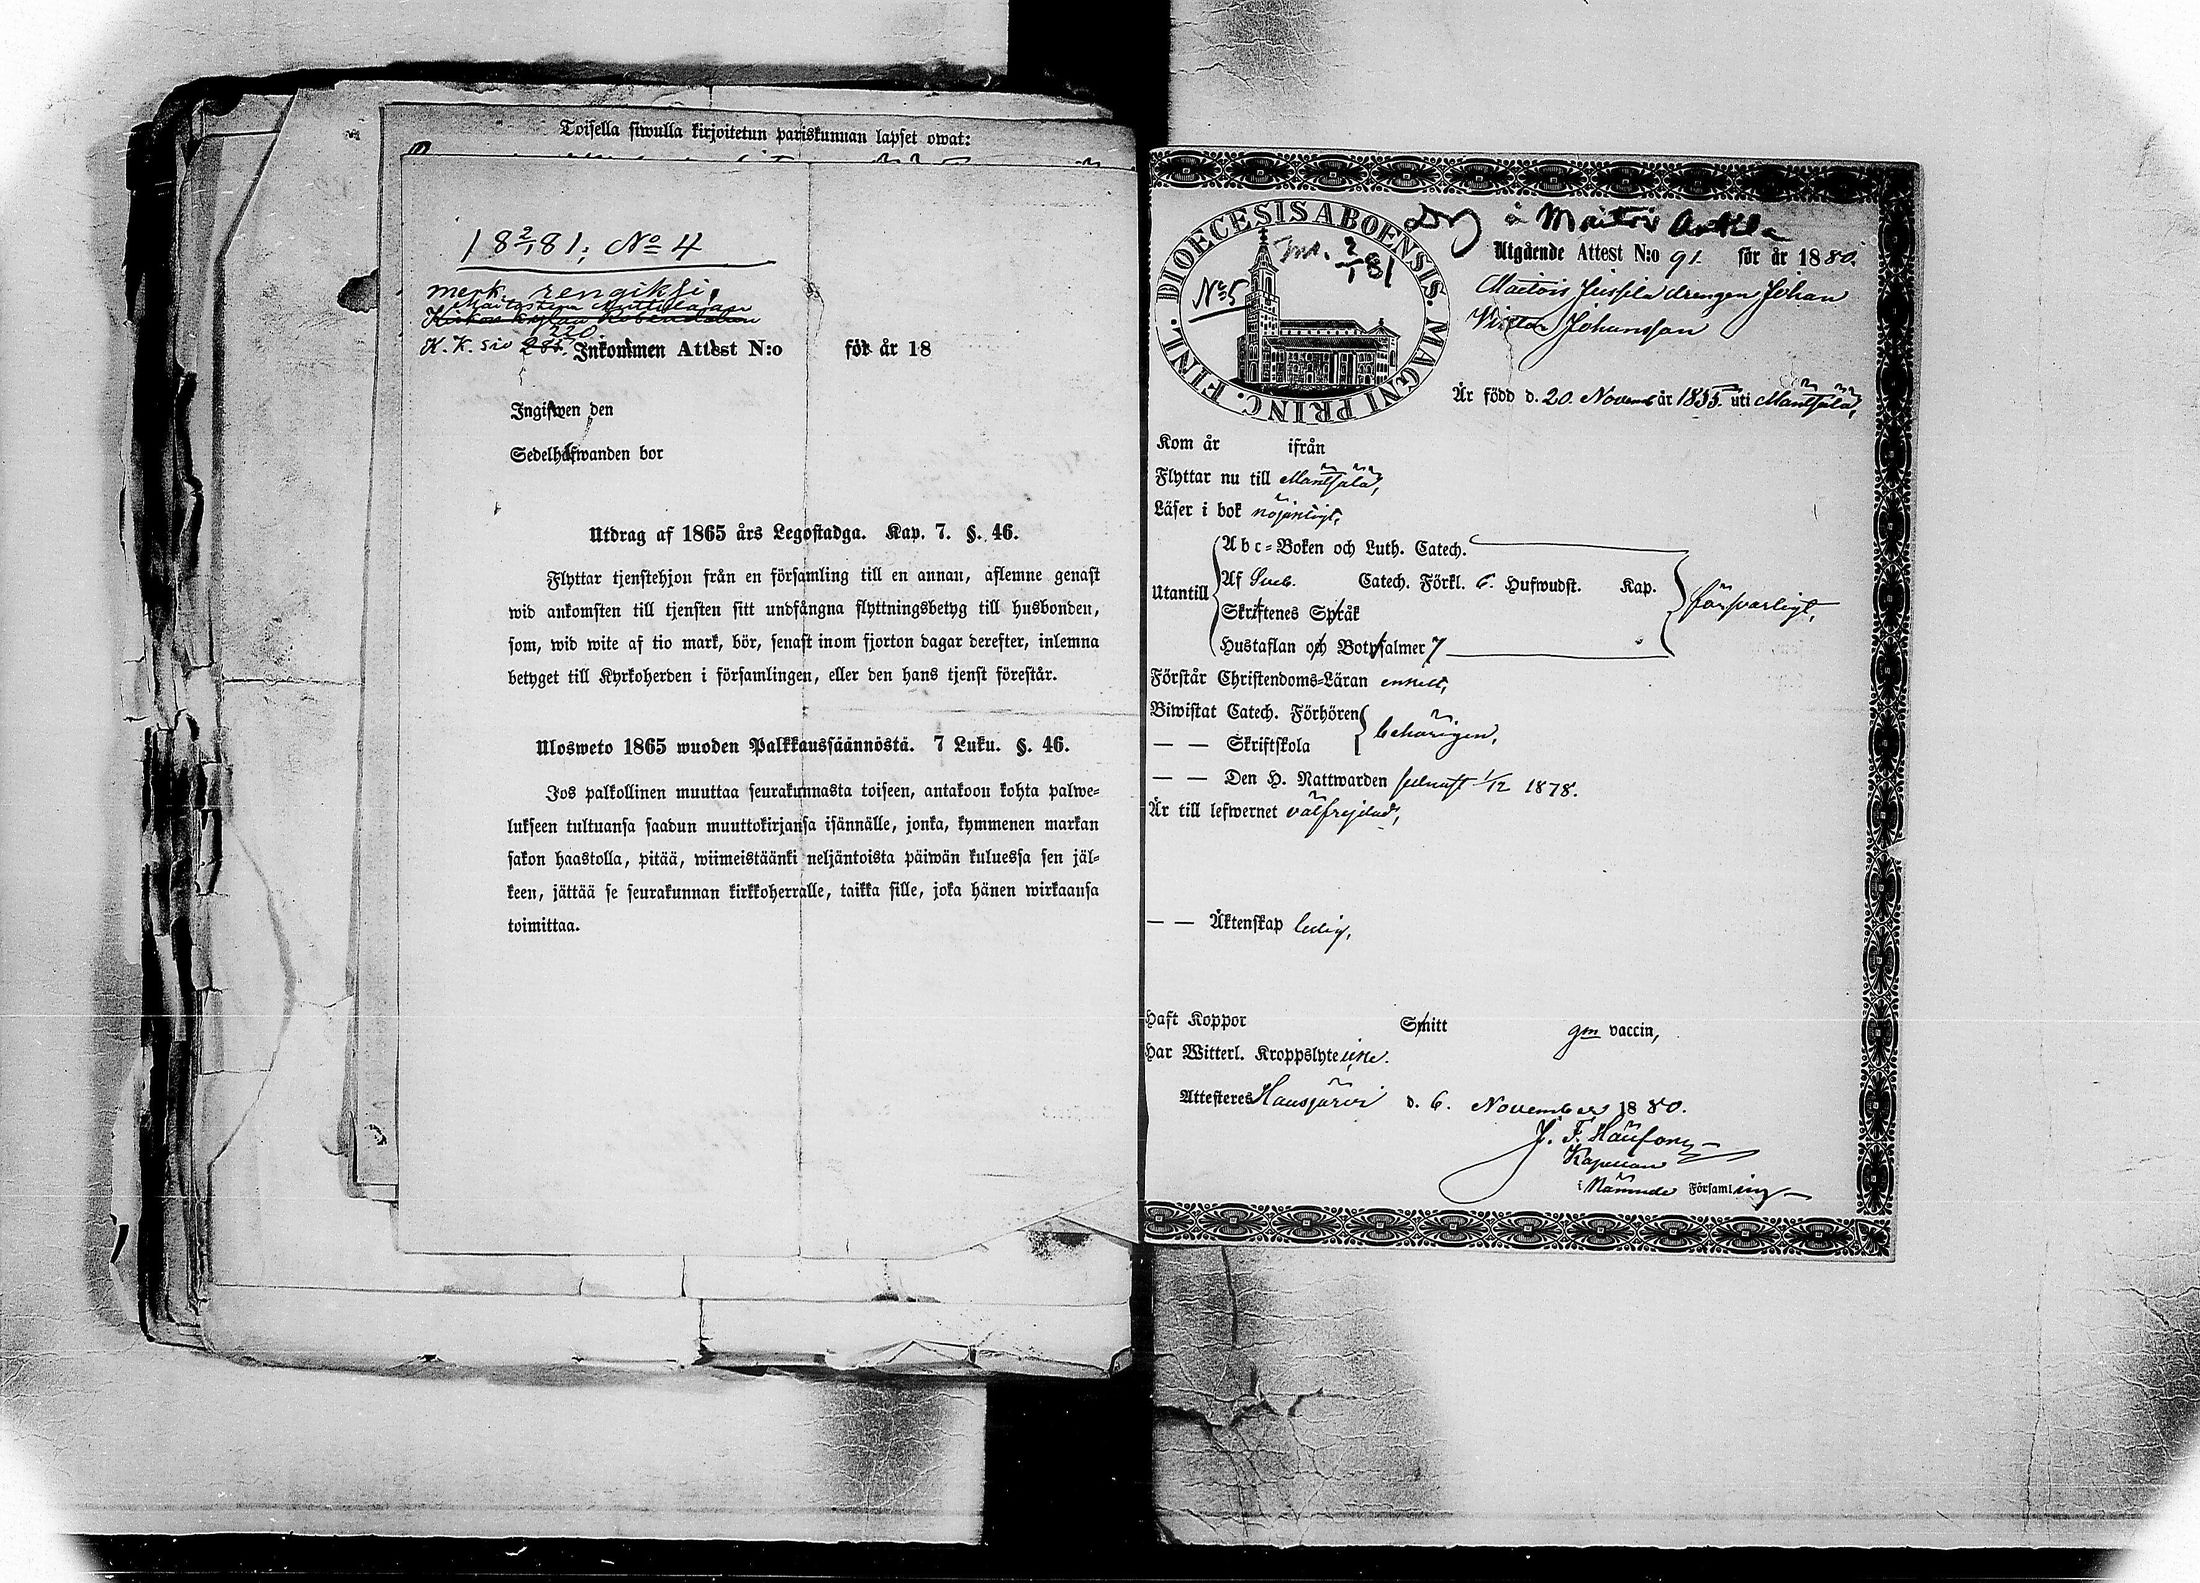 Toisella siwulla kirjoitetun pariskunnan lapset owat:
18 2/1 81; No 4
merk. rengiksi,
220
K. K. siv Inkommen Attest N:o för år 18
Ingifwen den
Sedelhafwanden bor
Utdrag af 1865 års Legostadga. Kap. 7. §. 46.
Flyttar tjenstehjon från en församling till en annan, aflemne genast
wid ankomsten till tjensten sitt undfångna flyttningsbetyg till husbonden,
som, wid wite af tio mark, bör, senast inom fjorton dagar derefter, inlemna
betyget till Kyrkoherden i församlingen, eller den hans tjenst förestår.
Ulosweto 1865 wuoden Palkkaussäännöstä. 7 Luku. §. 46.
Jos palkollinen muuttaa seurakunnasta toiseen, antakoon kohta palwe-
lukseen tultuansa saadun muuttokirjansa isännälle, jonka, kymmenen markan
sakon haastolla, pitää, wiimeistäänki neljäntoista päiwän kuluessa sen jäl-
keen, jättää se seurakunnan kirkkoherralle, taikka sille, joka hänen wirkaansa
toimittaa.
DIOECESIS ABOENSIS. MAGNI PRINC. FINL.
No 5
Ink. 2/1 81
Drg å Maitois Anttila
Utgående Attest N:o 91. för år 1880.
Maitois Jussila drengen Johan
Victor Johansson
Är född d. 20. Novemb år 1855. uti Mäntsälä,
Kom år ifrån
Flyttar nu till Mäntsälä,
Läser i bok nöjaktigt,
Utantill
Abc-Boken och Luth. Catech.
Af Sveb. Catech. Förkl. 6. Hufwudst. Kap.
Skriftenes Språk
Hustaflan och Botpsalmer 7
försvarligt,
Förstår Christendoms-Läran enkelt,
Biwistat Catech. Förhören
— — Skriftskola
behörigen,
— — Den H. Nattwarden sednast 1/12 1878.
Är till lefwernet välfrejdad,
— — Äktenskap ledig,
Haft Koppor Smitt gm vaccin,
Har Witterl. Kroppslyte icke.
Attesteres Hausjärvi d. 6. November 1880.
J. F.
Kapellan
i Nämnde Församling